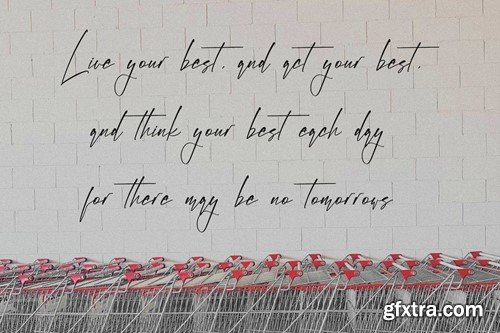 Live your best, and act your best,
and think your best each day
for there may be no tomorrows
gfxtra.com